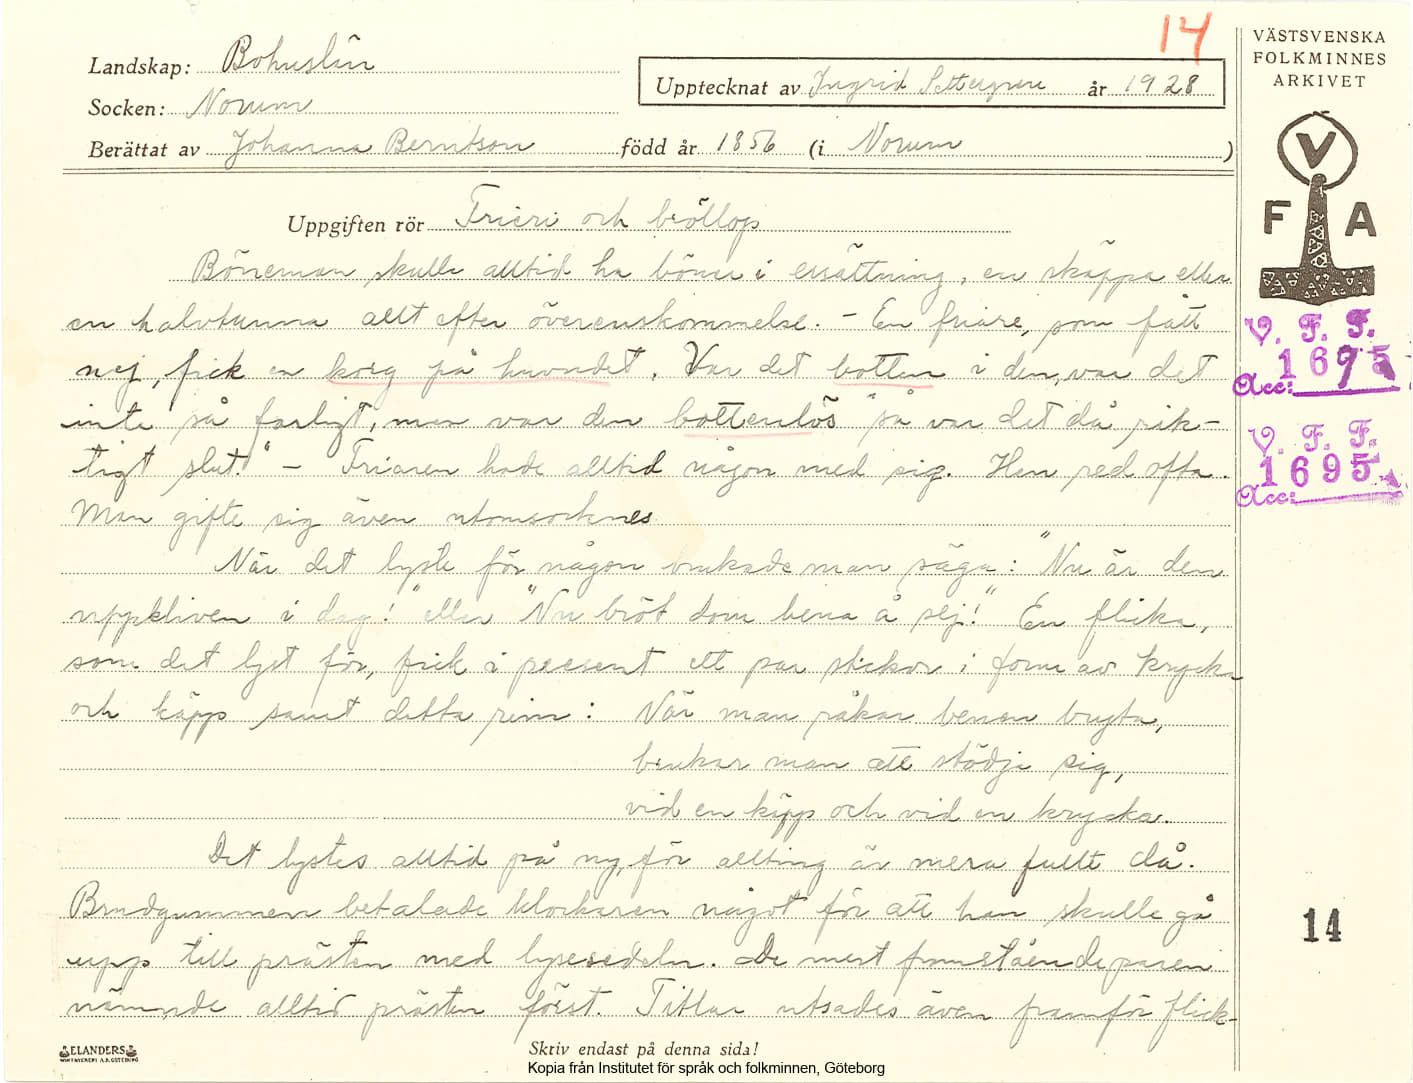 14
VÄSTSVENSKA
FOLKMINNES
ARKIVET
Landskap: Bohuslän
Upptecknat av Ingrid Settergren år 1928
Socken: Norum
Berättat av Johanna Berntson född år 1856 (i Norum )
V
F A
Uppgiften rör Frieri och bröllop
Böneman skulle alltid ha bönor i ersättning, en skäppa eller
en halvtunna allt efter överenskommelse. - En friare, som fått
nej, fick en korg på huvudet. Var det botten i den, var det
inte så farligt, men var den bottenlös "så var det då rik-
tigt slut." - Friaren hade alltid någon med sig. Hen red ofta.
Man gifte sig även utomsocknes
När det lyste för någon brukade man säga: "Nu är den
uppkliven i dag!" eller "Nu bröt dom bena å sej!" En flicka,
som det lyst för, fick i present ett par stickor i form av krycka
och käpp samt detta rim: När man råkar benen bryta,
brukar man att stödja sig,
vid en käpp och vid en krycka.
Det lystes alltid på ny, för allting är mera fullt då.
Brudgummen betalade klockaren något för att han skulle gå
upp till prästen med lysesedeln. De mest framstående paren
nämnde alltid prästen först. Titlar utsades även framför flick-
V. F. F.
1695
Acc:
V. F. F.
1695
Acc:
14
ELANDERS
Skriv endast på denna sida!
Kopia från Institutet för språk och folkminnen, Göteborg